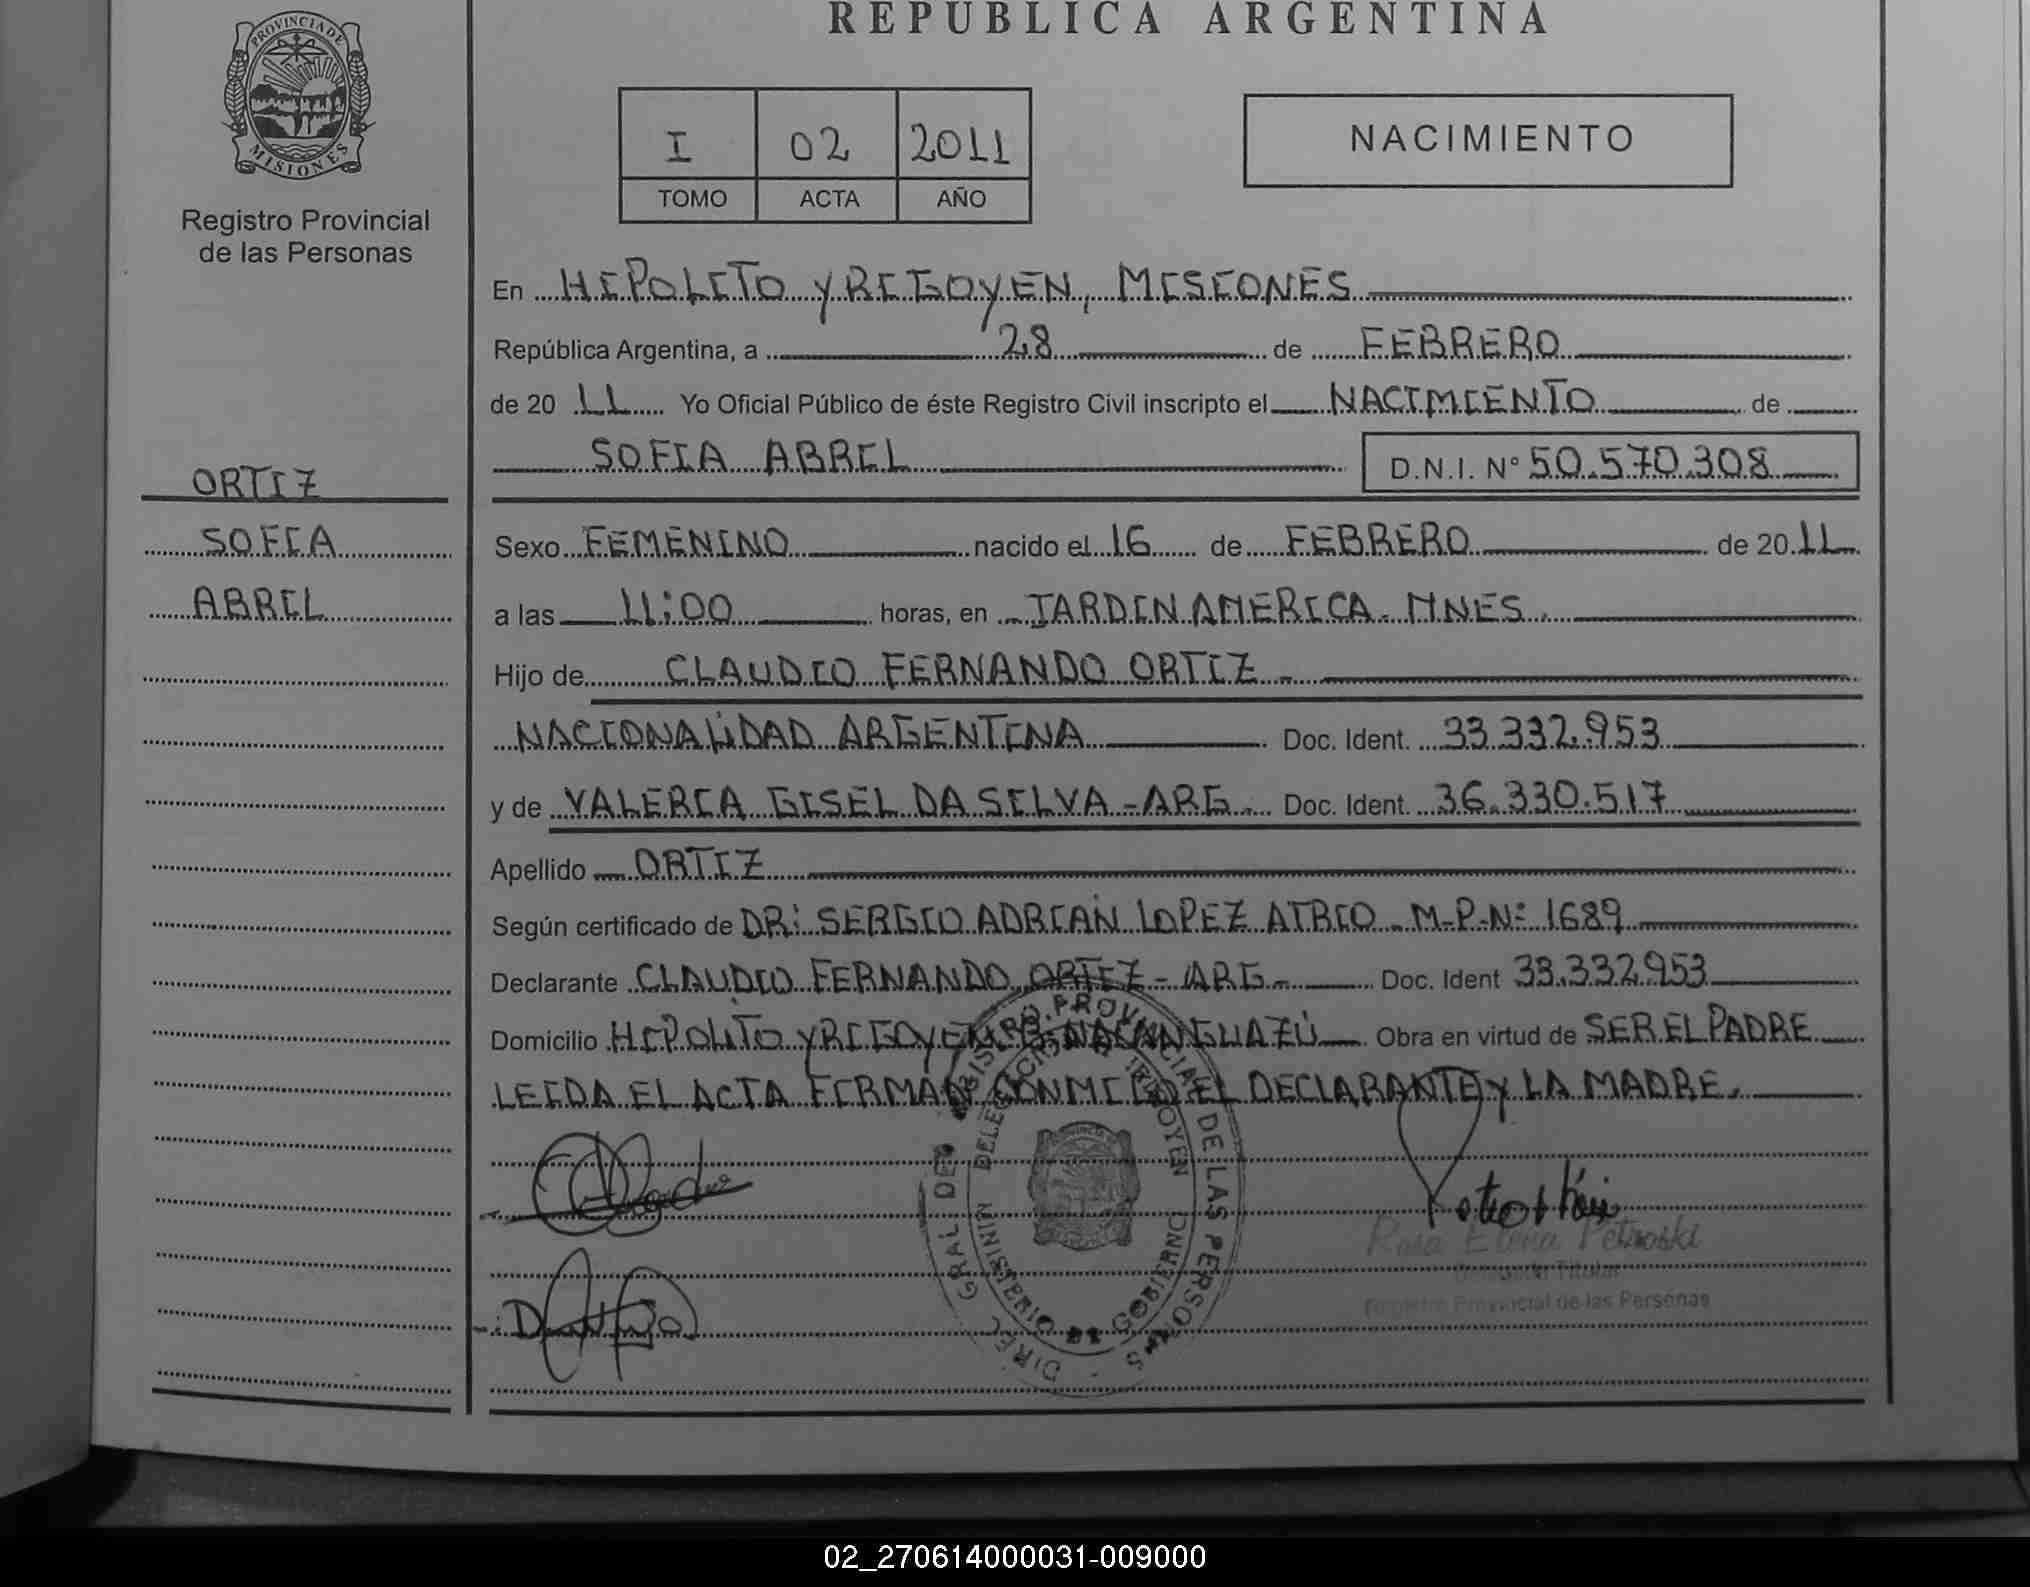 REPUBLICA ARGENTINA
PROVINCIA DE
MISIONES
Registro Provincial
de las Personas
I 02 2011
TOMO ACTA AÑO
NACIMIENTO
En HIPOLITO YRIGOYEN, MISIONES
República Argentina, a 28 de FEBRERO
de 20 11 Yo Oficial Público de éste Registro Civil inscripto el NACIMIENTO de
SOFIA ABRIL D.N.I. N° 50.570.308
ORTIZ
SOFIA
ABRIL
Sexo FEMENINO nacido el 16 de FEBRERO de 20 11
a las 11:00 horas, en JARDIN AMERICA - MNES.
Hijo de CLAUDIO FERNANDO ORTIZ -
NACIONALIDAD ARGENTINA Doc. Ident. 33.332.953
y de VALERIA GISEL DA SILVA - ARG - Doc. Ident. 36.330.517
Apellido ORTIZ
Según certificado de DR: SERGIO ADRIAN LOPEZ ATRIO - M-P-N: 1689
Declarante CLAUDIO FERNANDO ORTIZ - ARG - Doc. Ident 33.332.953
Domicilio HIPOLITO YRIGOYEN ÑACANGUAZÚ Obra en virtud de SER EL PADRE
LEIDA EL ACTA FIRMAN CONMIGO EL DECLARANTE Y LA MADRE.
DIREC GRAL DEL REGISTRO PROVINCIAL DE LAS PERSONAS
MINISTERIO DE GOBIERNO
Rosa Elena Petroski
Delegada Titular
Registro Provincial de las Personas
02_270614000031-009000